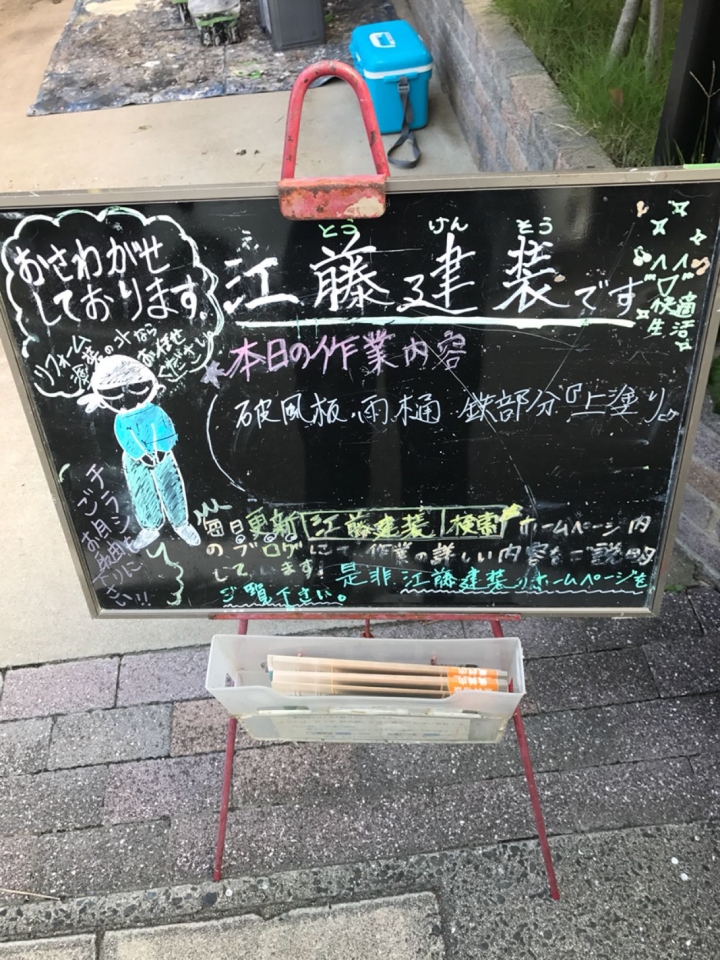 おさわがせ
しております。
リフォーム
お任せ
ください
とう けん そう
江藤建装です
快適
生活
本日の作業内容
破風板・雨樋 鉄部分『上塗り』
毎日更新 江藤建装 検索 ホームページ内
のブログにて作業の詳しい内容をご説明
しています。是非江藤建装のホームページを
ご覧下さい。
チラシ
ご自由に
お取り
下さい!!